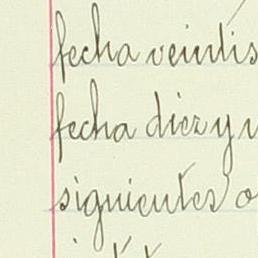 fecha veintis
fecha diez y n
siguientes o